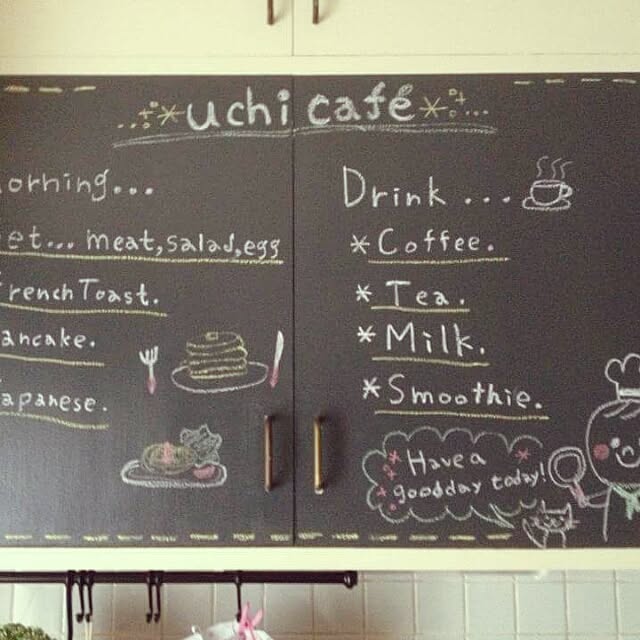 uchi café
orning...
et... meat, salad, egg
rench Toast.
ancake.
apanese.
Drink ...
*Coffee.
*Tea.
*Milk.
*Smoothie.
Have a
goodday today!